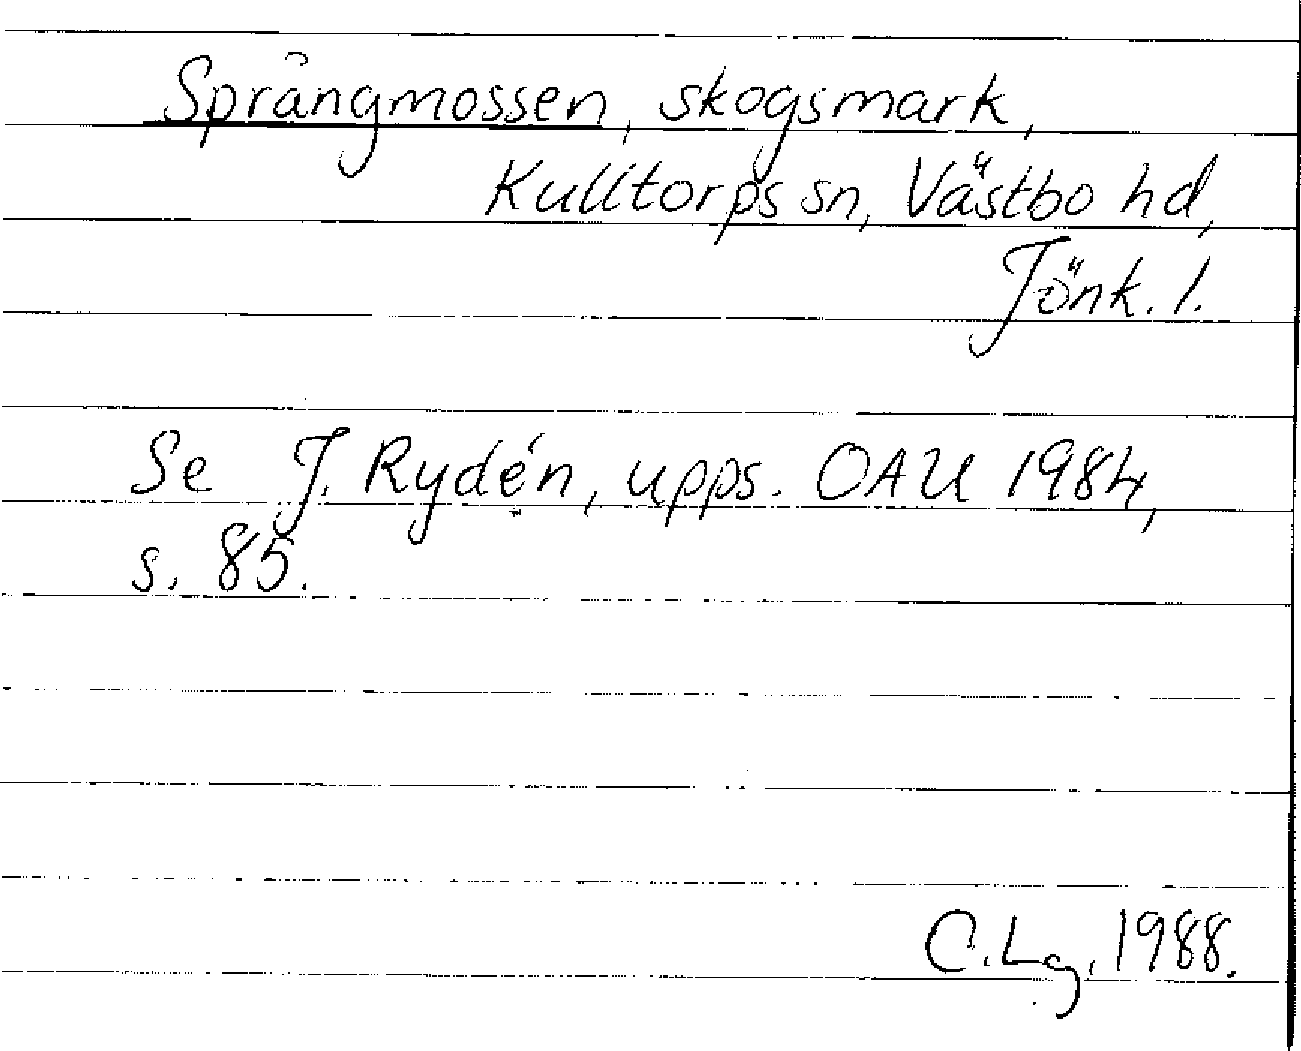 Språngmossen, skogsmark,
Kulltorps sn, Västbo hd,
Jönk. l.
Se J. Rydén, upps. OAU 1984,
s. 85.
C. Lg, 1988.